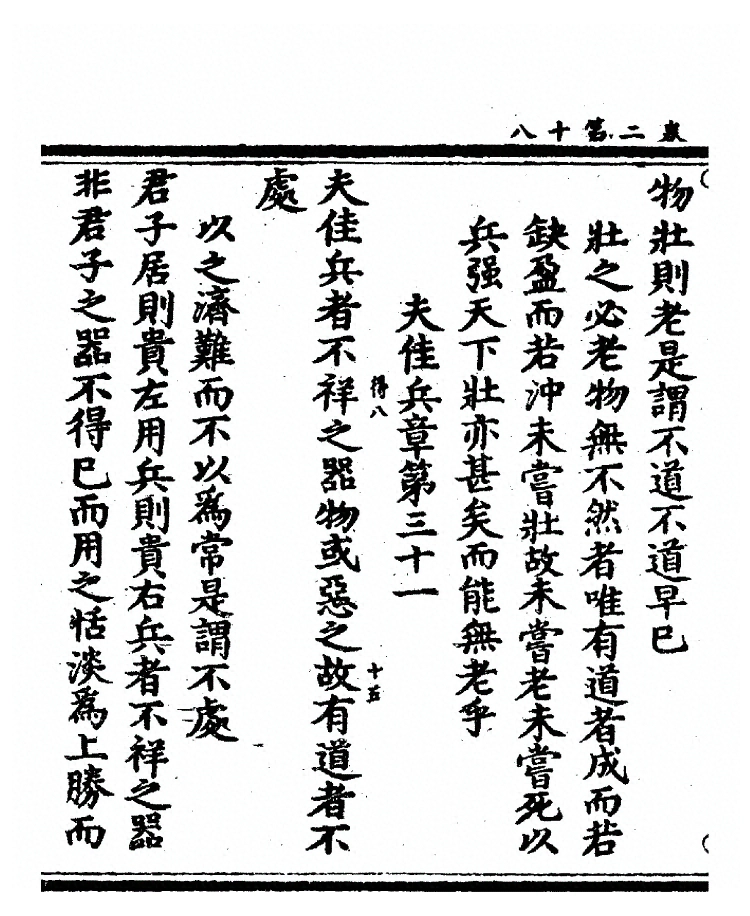 二第十八
物壯則老是謂不道不道早巳
壯之必老物無不然者唯有道者成而若
缺盈而若沖未嘗壯故未嘗老未嘗死以
兵强天下壯亦甚矣而能無老乎
夫佳兵章第三十一
得八
十五
夫佳兵者不祥之器物或惡之故有道者不
處
以之濟難而不以爲常是謂不處
君子居則貴左用兵則貴右兵者不祥之器
非君子之器不得巳而用之恬淡爲上勝而